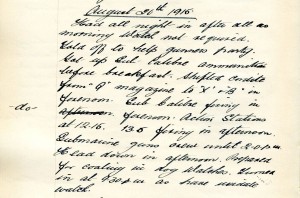 August 30th 1916.
Head all night in after all as
morning watch not required.
Told off to help gunners party.
Get up Sub Calibre ammunition
before breakfast. Shifted cordite
from "Q" magazine to "X" & "B" in
forenoon. Sub Calibre firing in
-do- afternoon. forenoon. Action Stations
at 12.16. 13.5 firing in afternoon.
Submarine guns crew until 2.0 p.m.
Head down in afternoon. Prepared
for coaling in dog watches. Turned
in at 8.30 p.m. as have middle
watch.